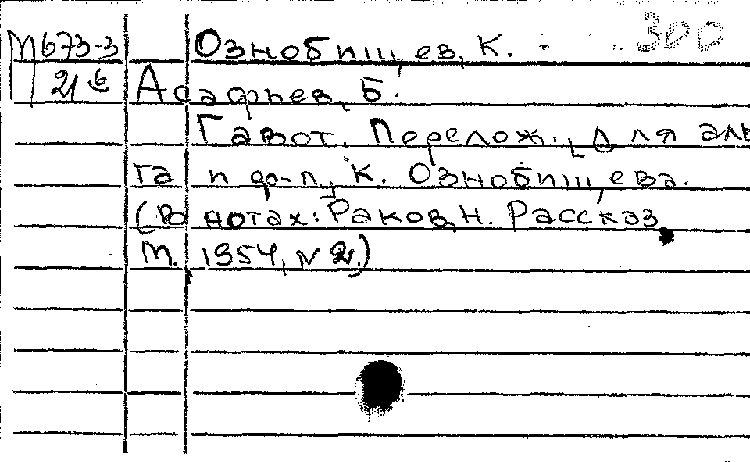 М673-3 Ознобищев, К. 300
21б Асафьев, Б.
Гавот. Перелож. [для аль
та и ф-п., К. Ознобищева.
(В нотах: Раков, Н. Рассказ,
М. 1954, N 2.)